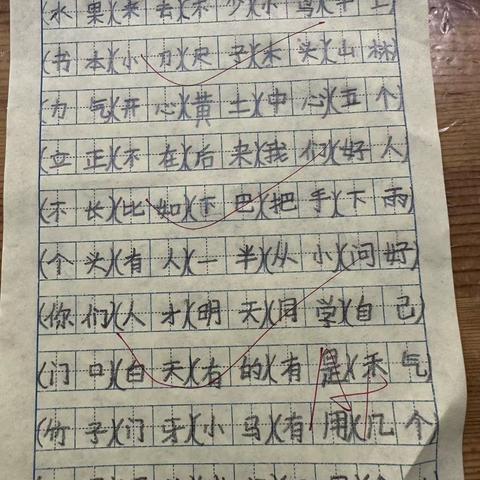 (水果)(来去)(不少)(小鸟)(早上)
(书本)(小刀)(尺子)(木头)(山林)
(力气)(开心)(黄土)(中心)(五个)
(立正)(不在)(后来)(我们)(好人)
(不长)(比如)(下巴)(把手)(下雨)
(个头)(有人)(一半)(从小)(问好)
(你们)(人才)(明天)(同学)(自己)
(门口)(白天)(右的)(有是)(天气)
(竹子)(门牙)(小马)(有用)(几个)